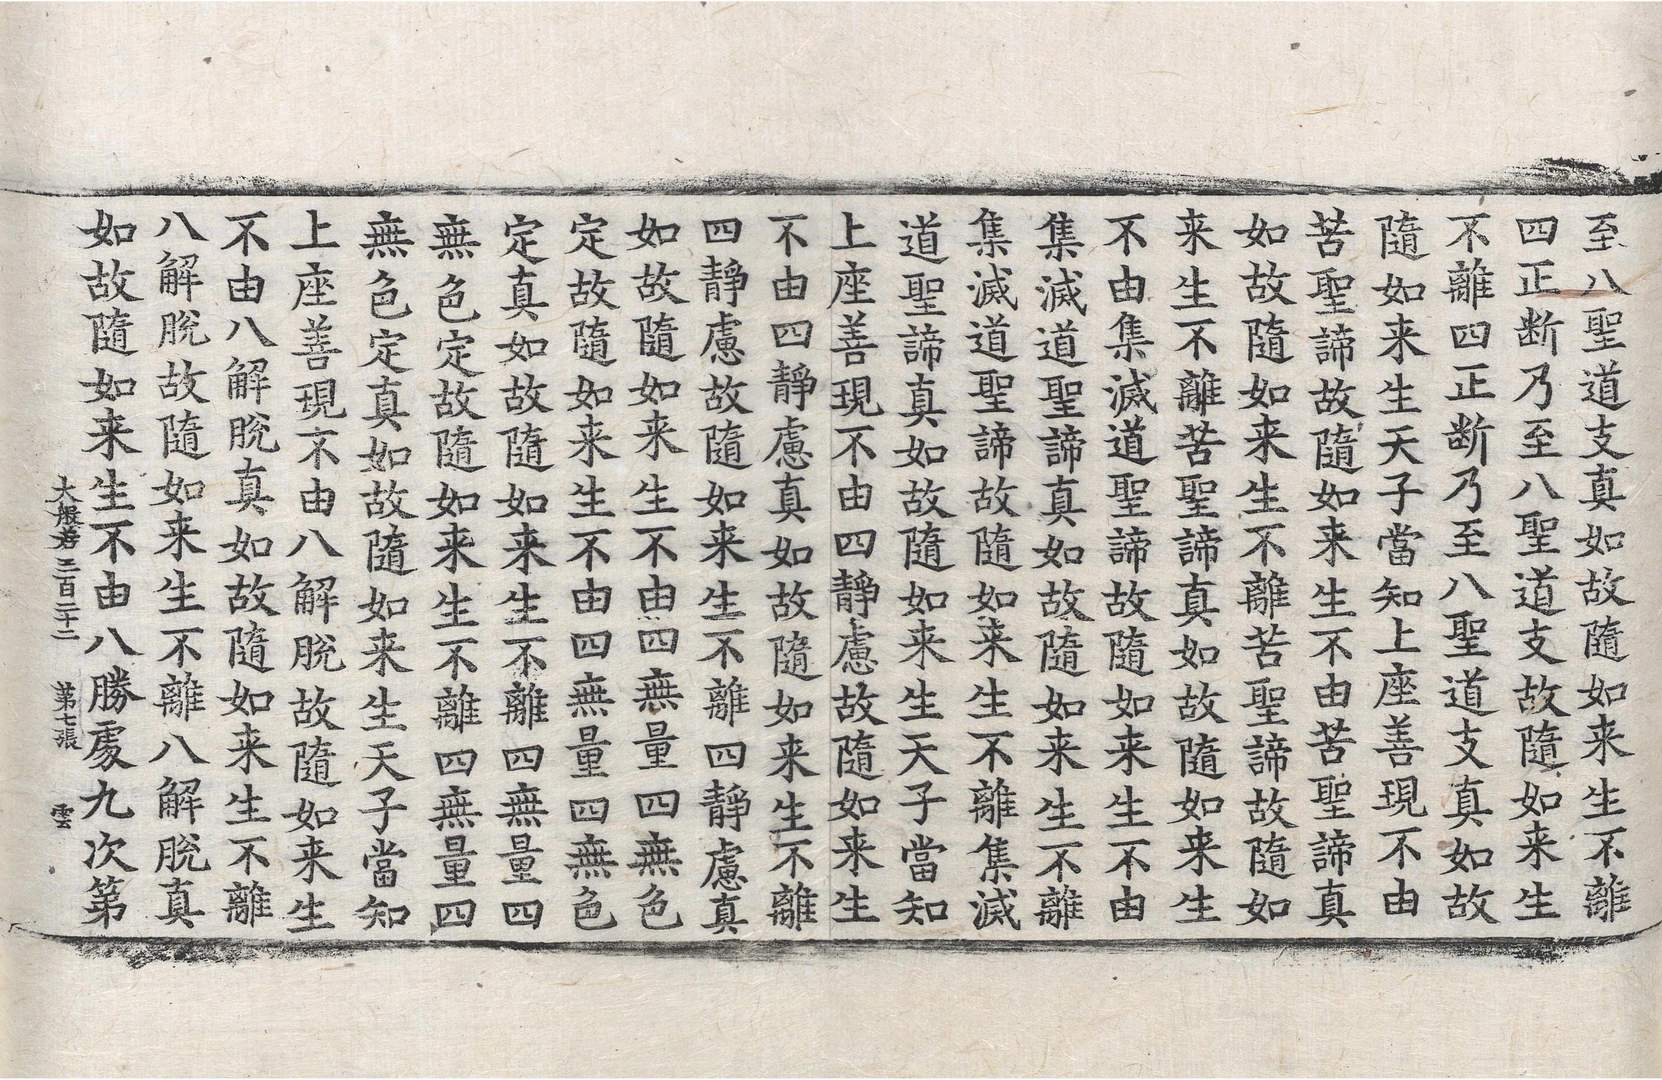 至八聖道支真如故隨如来生不離
四正断乃至八聖道支故隨如来生
不離四正断乃至八聖道支真如故
隨如来生天子當知上座善現不由
苦聖諦故隨如来生不由苦聖諦真
如故隨如来生不離苦聖諦故隨如
来生不離苦聖諦真如故隨如来生
不由集滅道聖諦故隨如来生不由
集滅道聖諦真如故隨如来生不離
集滅道聖諦故隨如来生不離集滅
道聖諦真如故隨如来生天子當知
上座善現不由四靜慮故隨如来生
不由四靜慮真如故隨如来生不離
四靜慮故隨如来生不離四靜慮真
如故隨如来生不由四無量四無色
定故隨如来生不由四無量四無色
定真如故隨如来生不離四無量四
無色定故隨如来生不離四無量四
無色定真如故隨如来生天子當知
上座善現不由八解脫故隨如来生
不由八解脫真如故隨如来生不離
八解脫故隨如来生不離八解脫真
如故隨如来生不由八勝處九次第
大般若三百二十二 第七張 雲